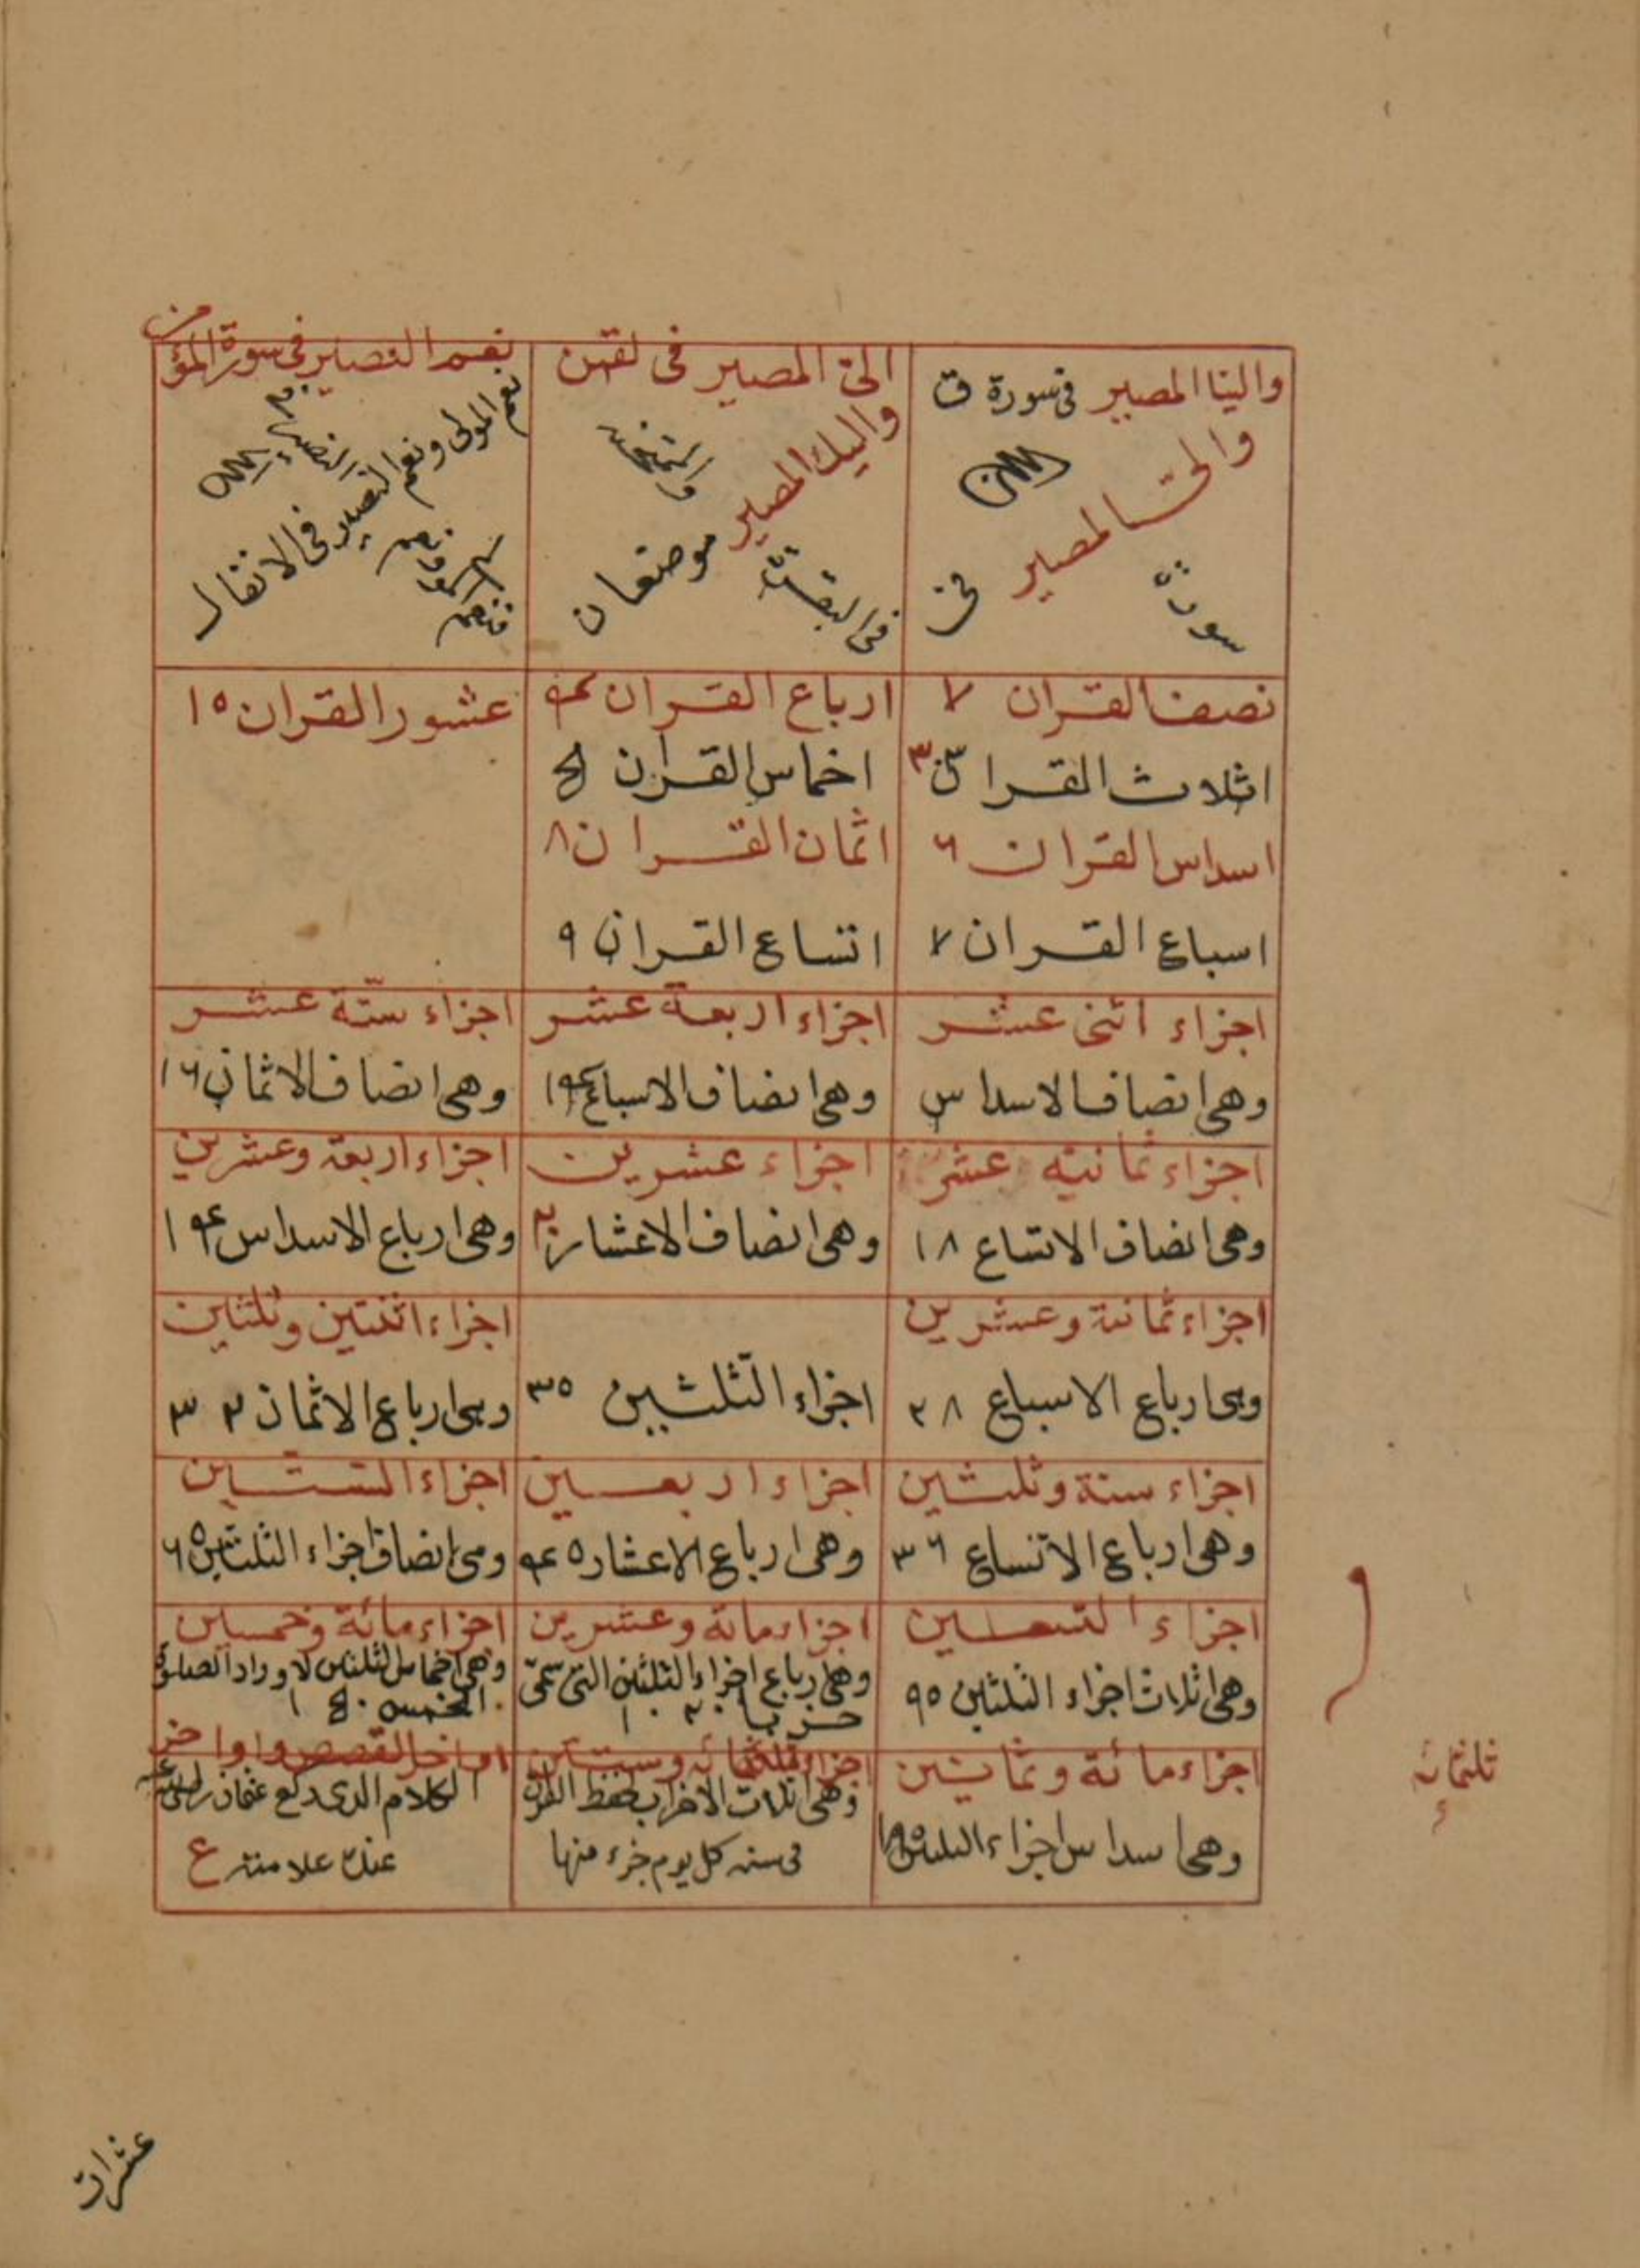 والينا المصير فى سورة ق
والىّ المصير فى
سورة
الىّ المصير فى لقمن
واليك المصير موضعان
والممتحنة
فى البقرة
نعم النصير فى سورة المؤمن
نعم المولى ونعم النصير فى الانفال
النصير
نصف القران ٢
اثلاث القران ٣
اسداس القران ٦
اسباع القران ٧
ارباع القران ۴
اخماس القران
اثمان القران ٨
اتساع القران ٩
عشور القران ١٥
اجزاء اثنى عشر
وهى انصاف الاسداس
اجزاء اربعة عشر
وهى انصاف الاسباع ١۴
اجزاء ستة عشر
وهى انصاف الاثمان ١٦
اجزاء ثمانية عشر
وهى انصاف الاتساع ١٨
اجزاء عشرين
وهى انصاف الاعشار
اجزاء اربعة وعشرين
وهى ارباع الاسداس
اجزاء ثمانية وعشرين
وهى ارباع الاسباع ٢٨
اجزاء الثلثين ٣٥
اجزاء اثنتين وثلثين
وهى ارباع الاثمان ٣٢
اجزاء ستة وثلثين
وهى ارباع الاتساع ٣٦
اجزاء اربعين
وهى ارباع الاعشار ۴٥
اجزاء الستين
وهى انصاف اجزاء الثلثين ٦٥
اجزاء التسعين
وهى اثلاث اجزاء الثلثين ٩٥
اجزاء مائة وعشرين
وهى ارباع اجزاء الثلثين التى سمّى
حزبا ١٢٠
اجزاء مائة وخمسين
وهى اخماس الثلثين لاوراد الصلوة
الخمس
اجزاء مائة وثمانين
وهى اسداس اجزاء الثلثين
اجزاء ثلثمائه وستين
وهى اثلاث الاحزاب لحفظ القران
فى سنه كل يوم جزء منها
اواخر القصص واواخر
الكلام الذى ركع عثمان رضى الله عنه
عنده علامته ع
ثلثمائه
عشرات